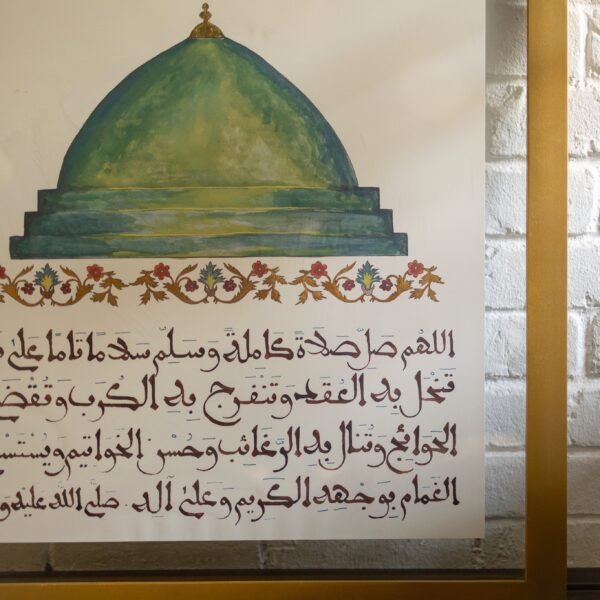 اللهم صَلِّ صَلَاةً كَامِلَةً وَسَلِّمْ سَلَامًا تَامًّا عَلَىٰ
تَنْحَلُّ بِهِ الْعُقَدُ وَتَنْفَرِجُ بِهِ الْكُرَبُ وَتُقْضَىٰ
الْحَوَائِجُ وَتُنَالُ بِهِ الرَّغَائِبُ وَحُسْنُ الْخَوَاتِيمِ وَيُسْتَسْ
الْغَمَامُ بِوَجْهِهِ الْكَرِيمِ وَعَلَىٰ آلِهِ. صَلَّى اللهُ عَلَيْهِ وَ